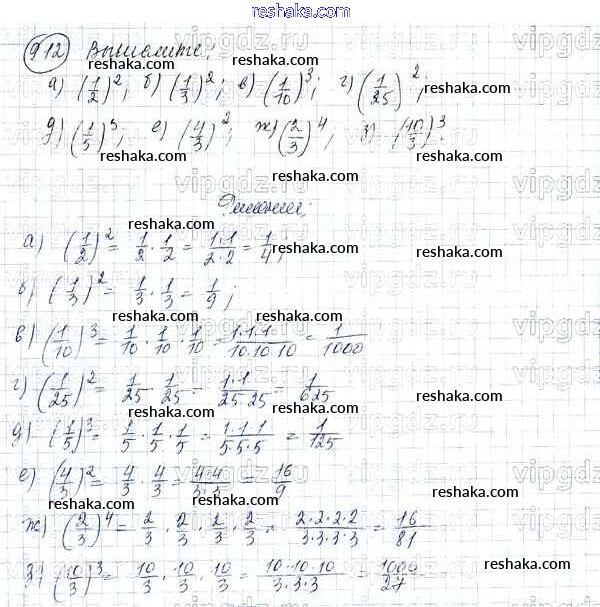 reshaka.com
912 Вычислите:
а) (1/2)²; б) (1/3)²; в) (1/10)³; г) (1/25)²;
д) (1/5)³; е) (4/3)²; ж) (2/3)⁴; з) (10/3)³.
Решение:
а) (1/2)² = 1/2 · 1/2 = 1·1/2·2 = 1/4;
б) (1/3)² = 1/3 · 1/3 = 1/9;
в) (1/10)³ = 1/10 · 1/10 · 1/10 = 1·1·1/10·10·10 = 1/1000
г) (1/25)² = 1/25 · 1/25 = 1·1/25·25 = 1/625
д) (1/5)³ = 1/5 · 1/5 · 1/5 = 1·1·1/5·5·5 = 1/125
е) (4/3)² = 4/3 · 4/3 = 4·4/3·3 = 16/9
ж) (2/3)⁴ = 2/3 · 2/3 · 2/3 · 2/3 = 2·2·2·2/3·3·3·3 = 16/81
з) (10/3)³ = 10/3 · 10/3 · 10/3 = 10·10·10/3·3·3 = 1000/27
vipgdz.ru